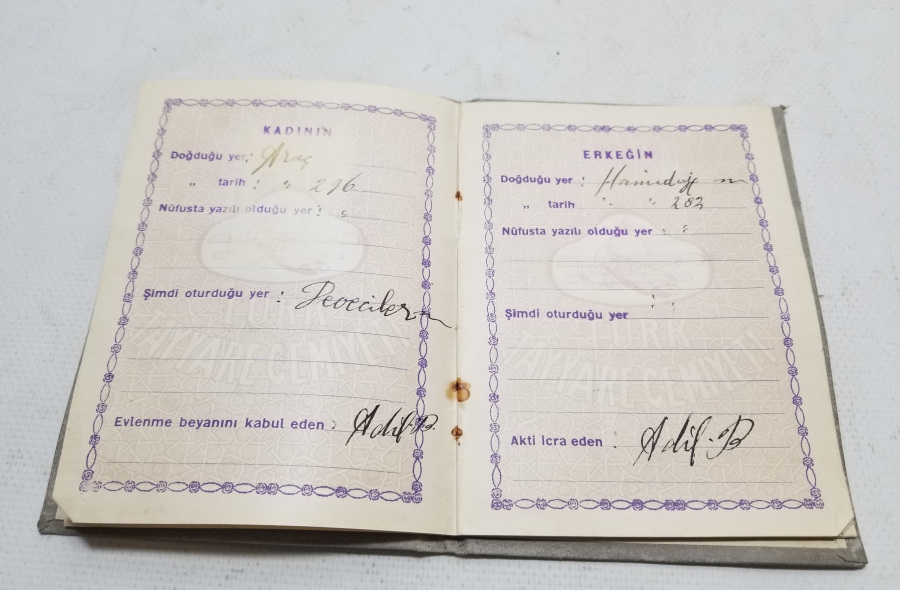 KADININ
Doğduğu yer: Araç
„ tarih : „ 296
Nüfusta yazılı olduğu yer :
Şimdi oturduğu yer :
Evlenme beyanını kabul eden : Adil.B.
TÜRK
TAYYARE CEMİYETİ
ERKEĞİN
Doğduğu yer :
„ tarih „ „ 282
Nüfusta yazılı olduğu yer :
Şimdi oturduğu yer
Akti icra eden : Adil.B
TÜRK
TAYYARE CEMİYETİ